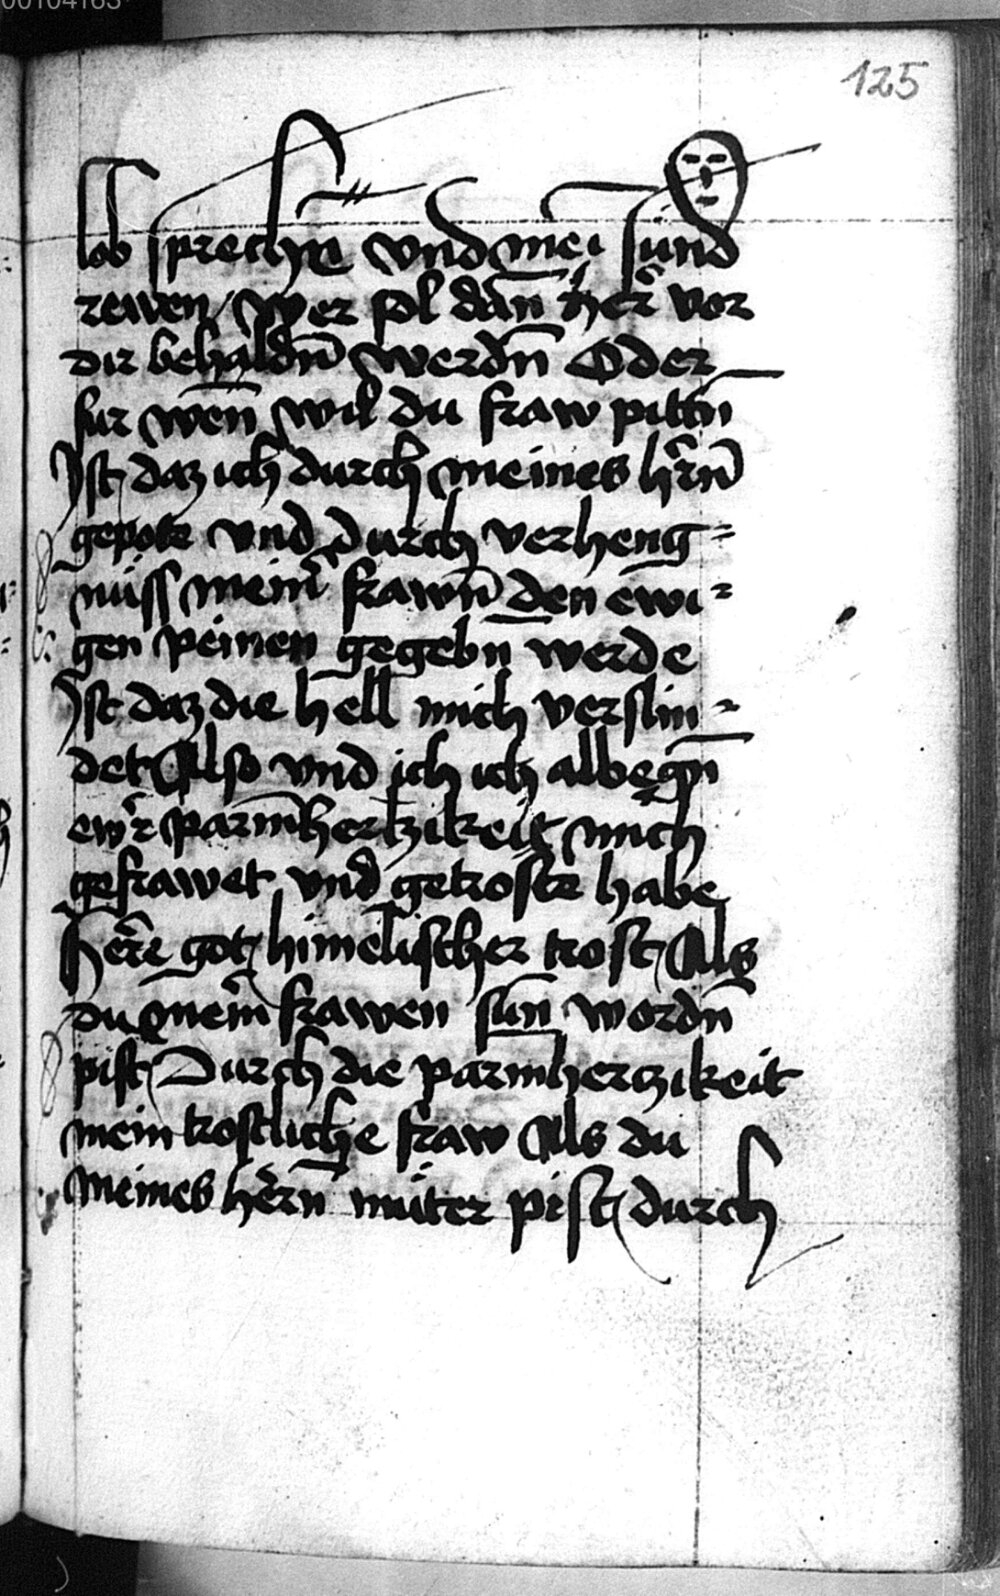 00104163
125
lob sprechn̄ vnd mei sund
rewen / Wer sol dan̄ her̄ vor
dir behaldn̄ werdn̄ Oder
fur wen̄ wil du fraw pittn̄
Ist daz ich durch meines hern̄
gepote vnd durch verheng=
nuss mein̄ frawn̄ den ewi=
gen peinen gegebn̄ werde
Ist daz die hell mich verslin=
det Also vnd ich ich albegn̄
ewr̄ parmhertzikeit mich
gefrawet vnd getroste habe
Herre got himelischer trost Als
du mein̄ frawen sun̄ wordn̄
pist Durch die parmherczikeit
mein trostliche fraw Als du
meines hern̄ muter pist durch